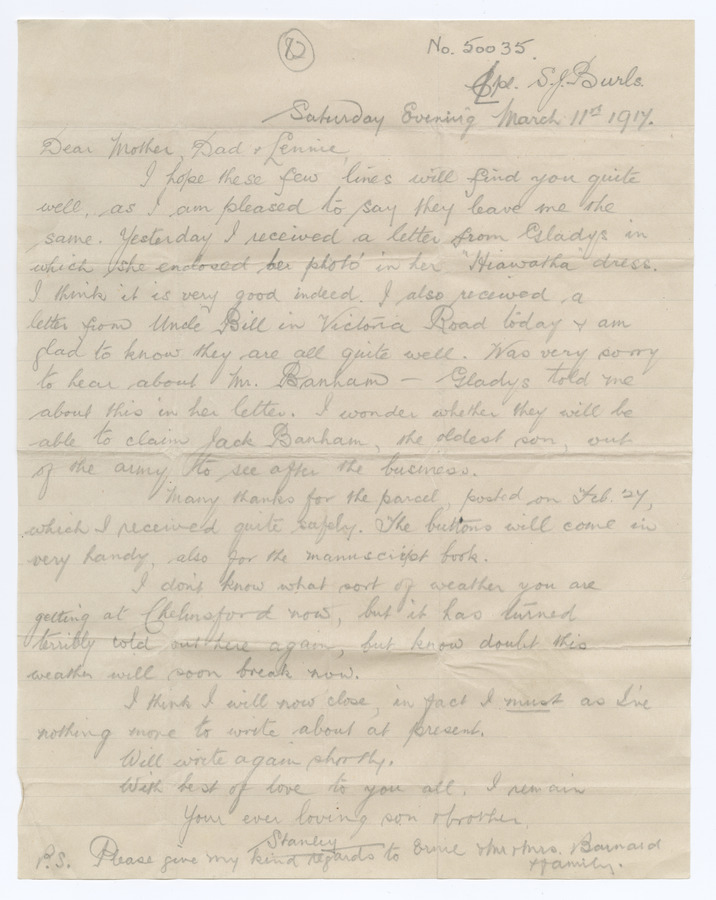 82
No. 50035.
Cpl. S.J. Burls.
Saturday Evening March 11st 1917.
Dear Mother, Dad & Lennie,
I hope these few lines will find you quite
well, as I am pleased to say they leave me the
same. Yesterday I received a letter from Gladys in
which she enclosed her photo in her "Hiawatha" dress.
I think it is very good indeed. I also received a
letter from Uncle Bill in Victoria Road today & am
glad to know they are all quite well. Was very sorry
to hear about Mr. Banham – Gladys told me
about this in her letter. I wonder whether they will be
able to claim Jack Banham, the oldest son, out
of the army to see after the business.
Many thanks for the parcel, posted on Feb. 27,
which I received quite safely. The buttons will come in
very handy, also for the manuscript book.
I don't know what sort of weather you are
getting at Chelmsford now, but it has turned
terribly cold out here again, but know doubt this
weather will soon break now.
I think I will now close, in fact I must as I've
nothing more to write about at present.
Will write again shortly.
With best of love to you all. I remain
Your ever loving son & brother,
Stanley
P.S. Please give my kind regards to Ernie & Mr & Mrs. Barnard
& family.